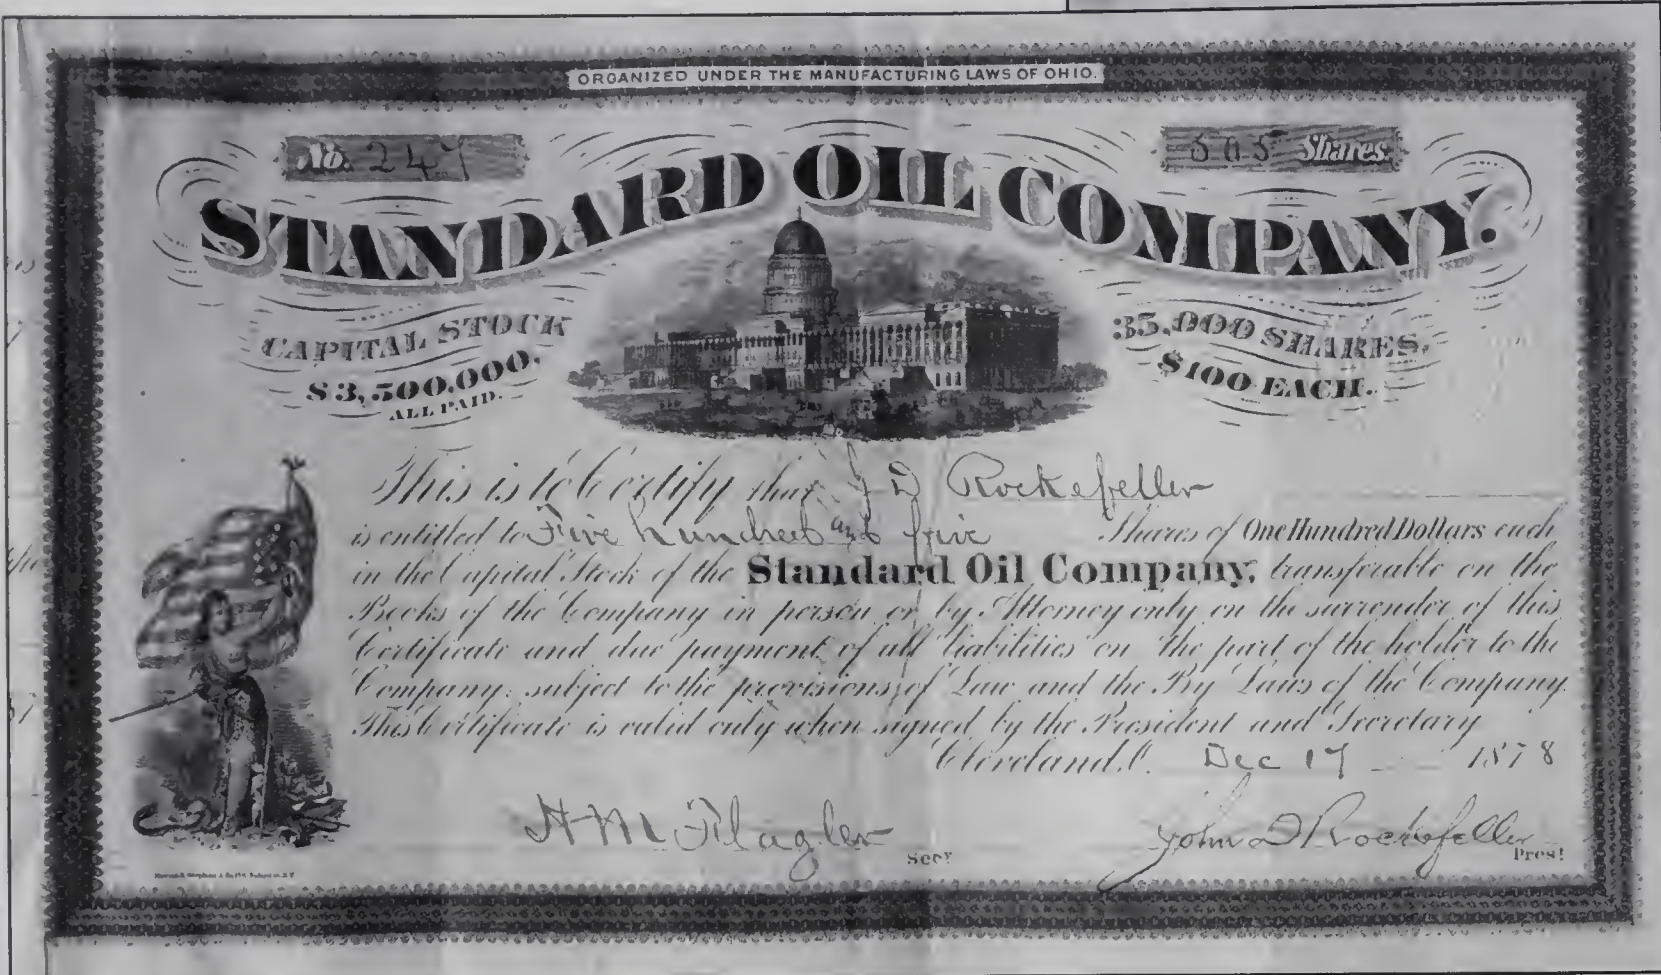 ORGANIZED UNDER THE MANUFACTURING LAWS OF OHIO.
No. 247
505 Shares.
STANDARD OIL COMPANY.
CAPITAL STOCK
$3,500,000.
ALL PAID.
35,000 SHARES,
$100 EACH.
This is to Certify that J D Rockefeller
is entitled to Five hundred and five Shares of One Hundred Dollars each
in the Capital Stock of the Standard Oil Company, transferable on the
Books of the Company in person or by Attorney only on the surrender of this
Certificate and due payment of all liabilities on the part of the holder to the
Company, subject to the provisions of Law and the By Laws of the Company.
This Certificate is valid only when signed by the President and Secretary
Cleveland, O. Dec 17 1878
H M Flagler Secy
John D Rockefeller Prest